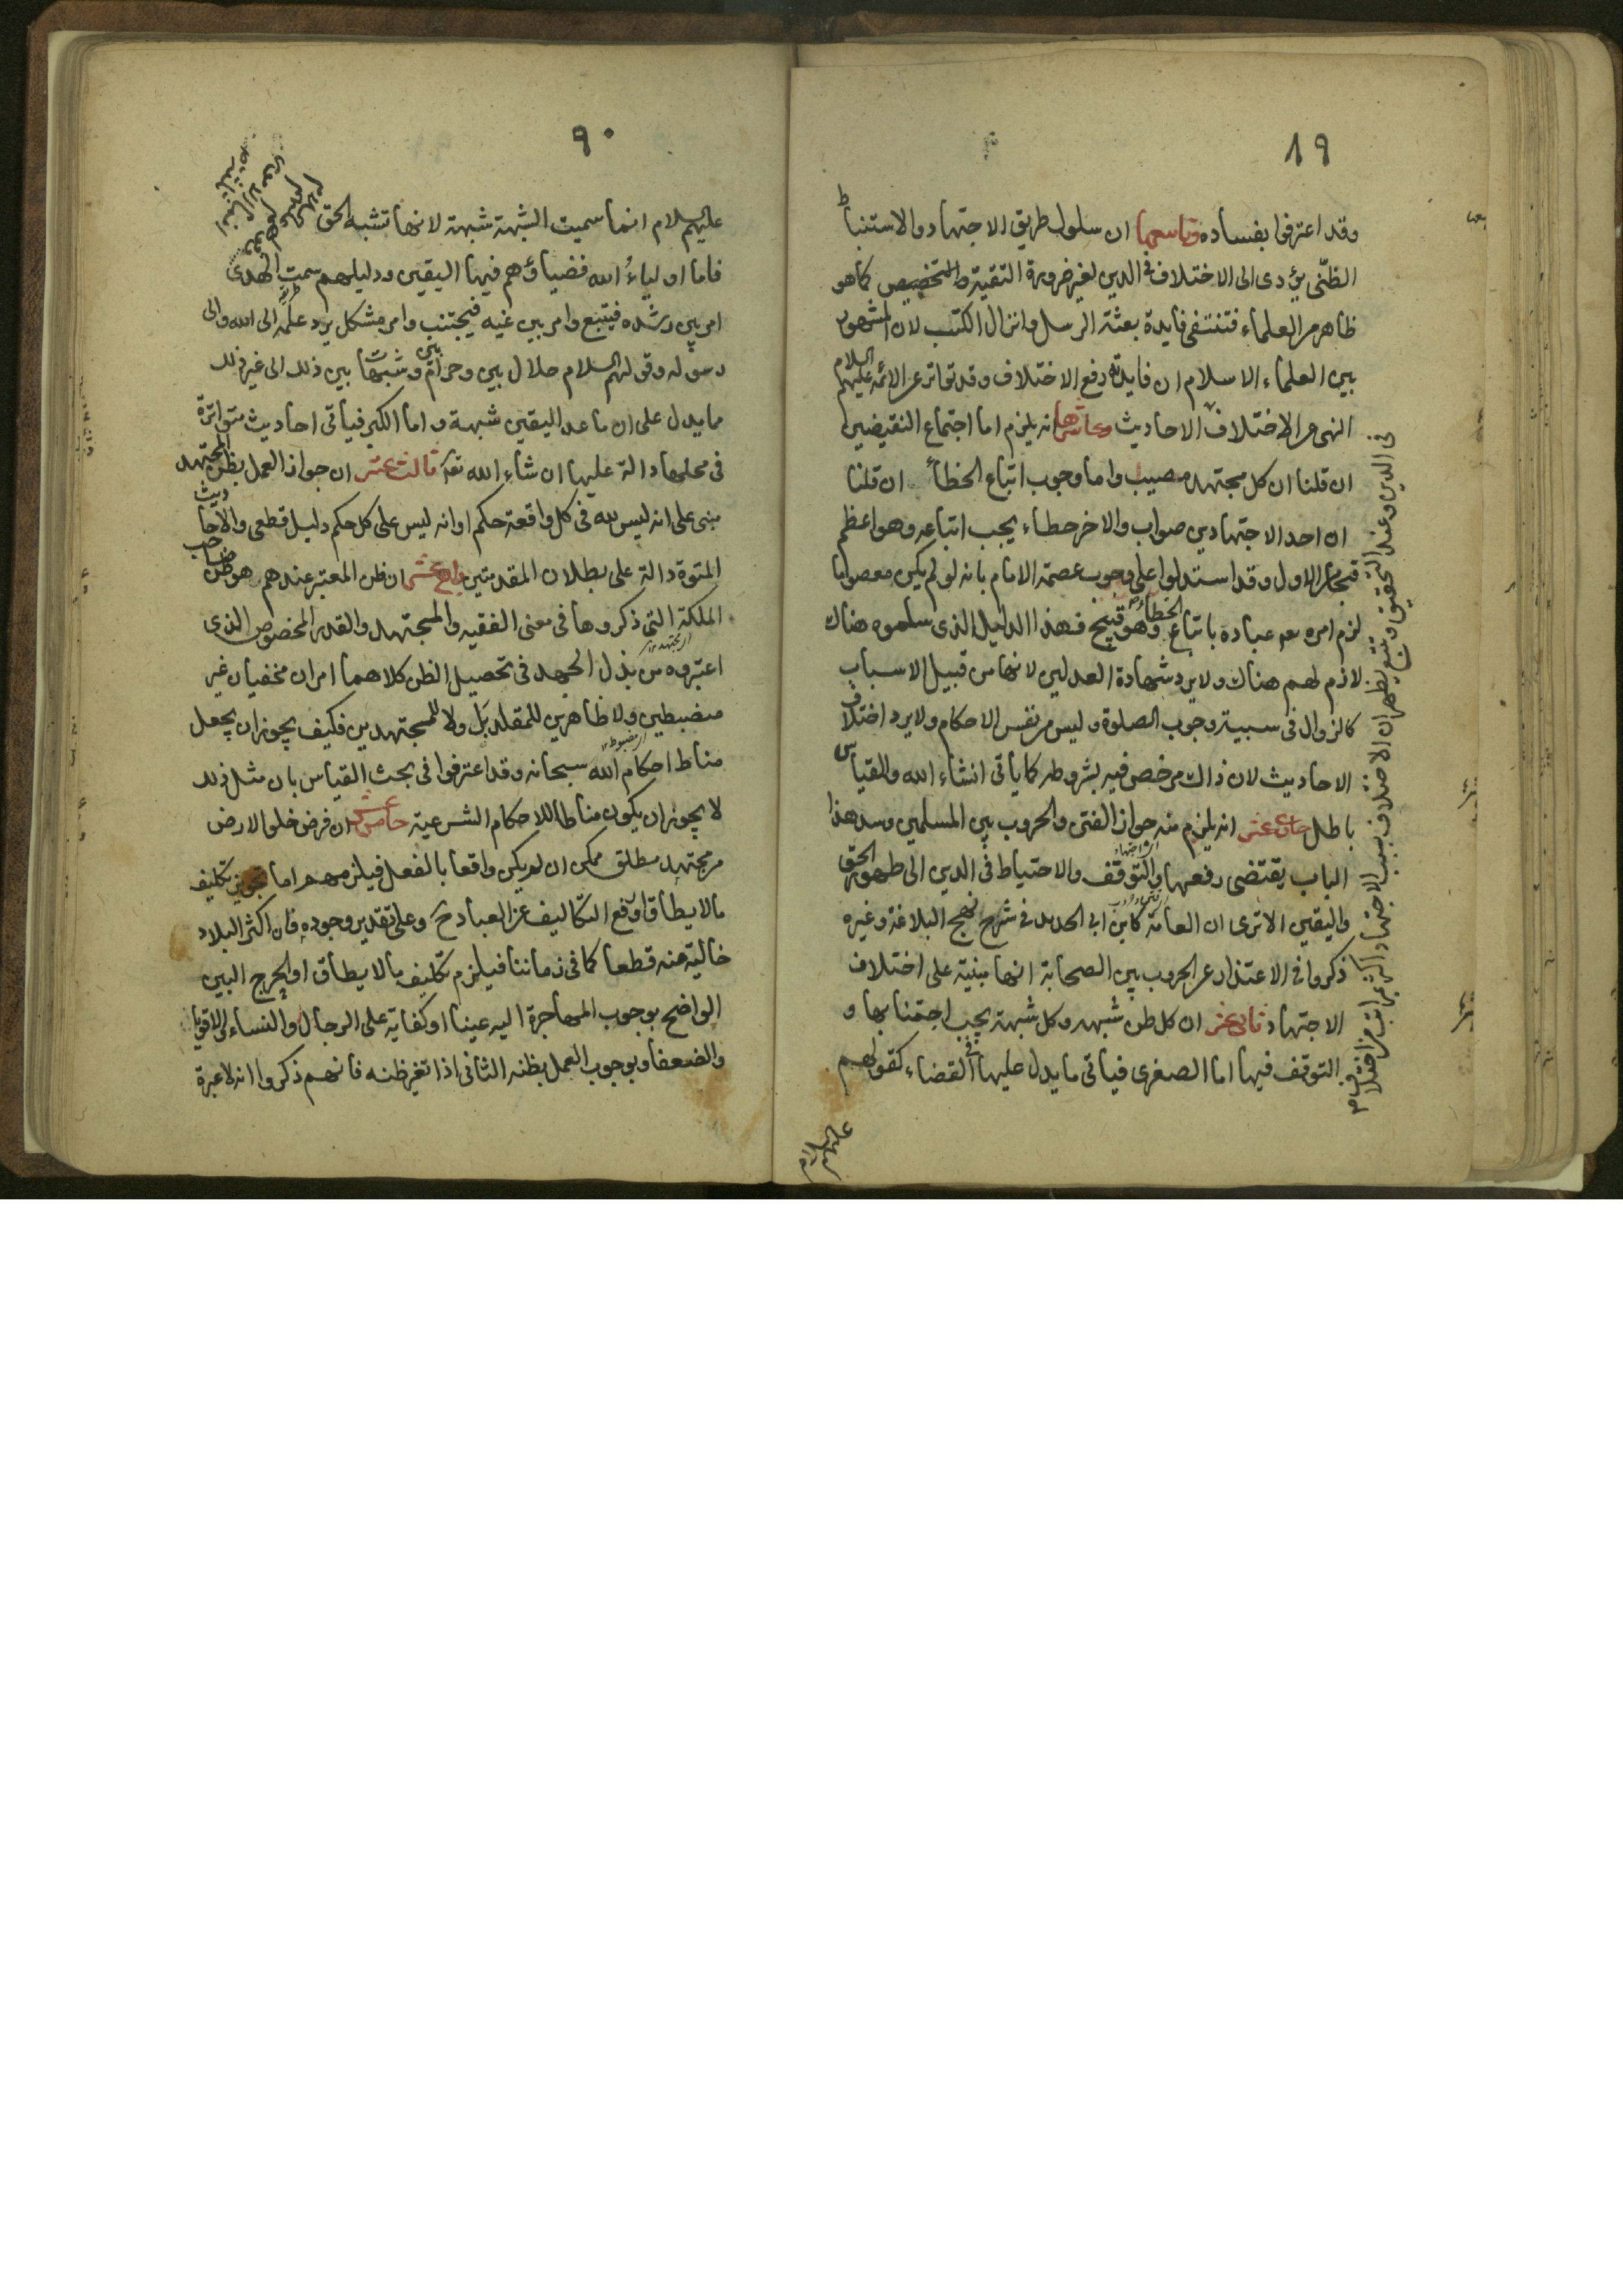 ١٩
وقد اعترفوا بفساده وتاسعها ان سلوك طريق الاجتهاد والاستنباط
الظنّى يؤدى الى الاختلاف فى الدين لغير ضرورة التقية والتخصيص كما هو
ظاهر من العلماء فتنتفى فايدة بعثة الرسل وانزال الكتب لان المشهور
بين العلماء الاسلام ان فايدته رفع الاختلاف وقد تواتر عن الائمة عليهم السلام
النهى عن الاختلاف الاحاديث وعاشرها انه يلزم اما اجتماع النقيضين
ان قلنا ان كل مجتهد مصيب واما وجوب اتباع الخطأ ان قلنا
ان احد الاجتهادين صواب والاخر خطاء يجب اتباعه وهو اعظم
قبحا من الاول وقد استدلوا على وجوب عصمة الامام بانه لو لم يكن معصوما
لزم امره تعم عباده باتباع الخطأ وهو قبيح فهذا الدليل الذى سلموه هناك
لازم لهم هناك ولا يرد شهادة العدلين لانها من قبيل الاسباب
كالزوال فى سببية وجوب الصلوة وليس من نفس الاحكام ولا يرد اختلاف
الاحاديث لان ذاك مرخص فيه بشروطه كما ياتى انشاء الله والقياس
باطل حادى عشر انه يلزم منه جواز الفتن والحروب بين المسلمين وسد هذا
الباب يقتضى رفعها والتوقف والاحتياط فى الدين الى ظهور الحق
واليقين الا ترى ان العامة كابن ابى الحديد فى شرح نهج البلاغة وغيره
ذكروا فى الاعتذار عن الحروب بين الصحابة انها مبنية على اختلاف
الاجتهاد ثانى عشر ان كل ظن شبهه وكل شبهة يجب اجتنابها و
التوقف فيها اما الصغرى فياتى ما يدل عليها فى القضاء كقولهم
عليهم السلام
٩٠
عليهم السلام انما سميت الشبهة شبهة لانها تشبه الحق
فاما اولياءُ الله فضياؤهم فيها اليقين ودليلهم سمت الهدى
امر بين رشده فيتبع وامر بين غيه فيجتنب وامر مشكل يرد علمه الى الله والى
رسوله وقولهم السلام حلال بين وحرام بين وشبهات بين ذلك الى غير ذلك
مما يدل على ان ما عدا اليقين شبهة واما الكبر فياتى احاديث متواترة
فى محلها دالة عليها ان شاء الله تعه ثالث عشر ان جواز العمل بظن المجتهد
مبنى على انه ليس لله فى كل واقعة حكم او انه ليس على كل حكم دليل قطعى والاحاديث
المتوة دالة على بطلان المقدمتين رابع عشر ان ظن المعتبر عندهم هو ظن صاحب
الملكة التى ذكروها فى معنى الفقيه والمجتهد والقدر المخصوص الذى
اعتبروه من بذل الجهد فى تحصيل الظن كلاهما امران مخفيان غير
منضبطين ولا ظاهرين للمقلد بَل ولا للمجتهدين فكيف يجوز ان يجعل
مناط احكام الله سبحانه وقد اعترفوا فى بحث القياس بان مثل ذلك
لا يجوز ان يكون مناطا للاحكام الشرعية خامس عشر ان فرض خلو الارض
من مجتهد مطلق ممكن ان لم يكن واقعا بالفعل فيلزمهم اما تجويز تكليف
ما لا يطاق او رفع التكاليف عن العباد ح وعلى تقدير وجوده فان اكثر البلاد
خالية عنه قطعا كما فى زماننا فيلزم تكليف ما لا يطاق او الحرج البين
الواضح بوجوب المهاجرة اليه عينا او كفاية على الرجال والنساء والاقويا
والضعفا وبوجوب العمل بظنه الثانى اذا تغير ظنه فانهم ذكروا انه لا عبرة